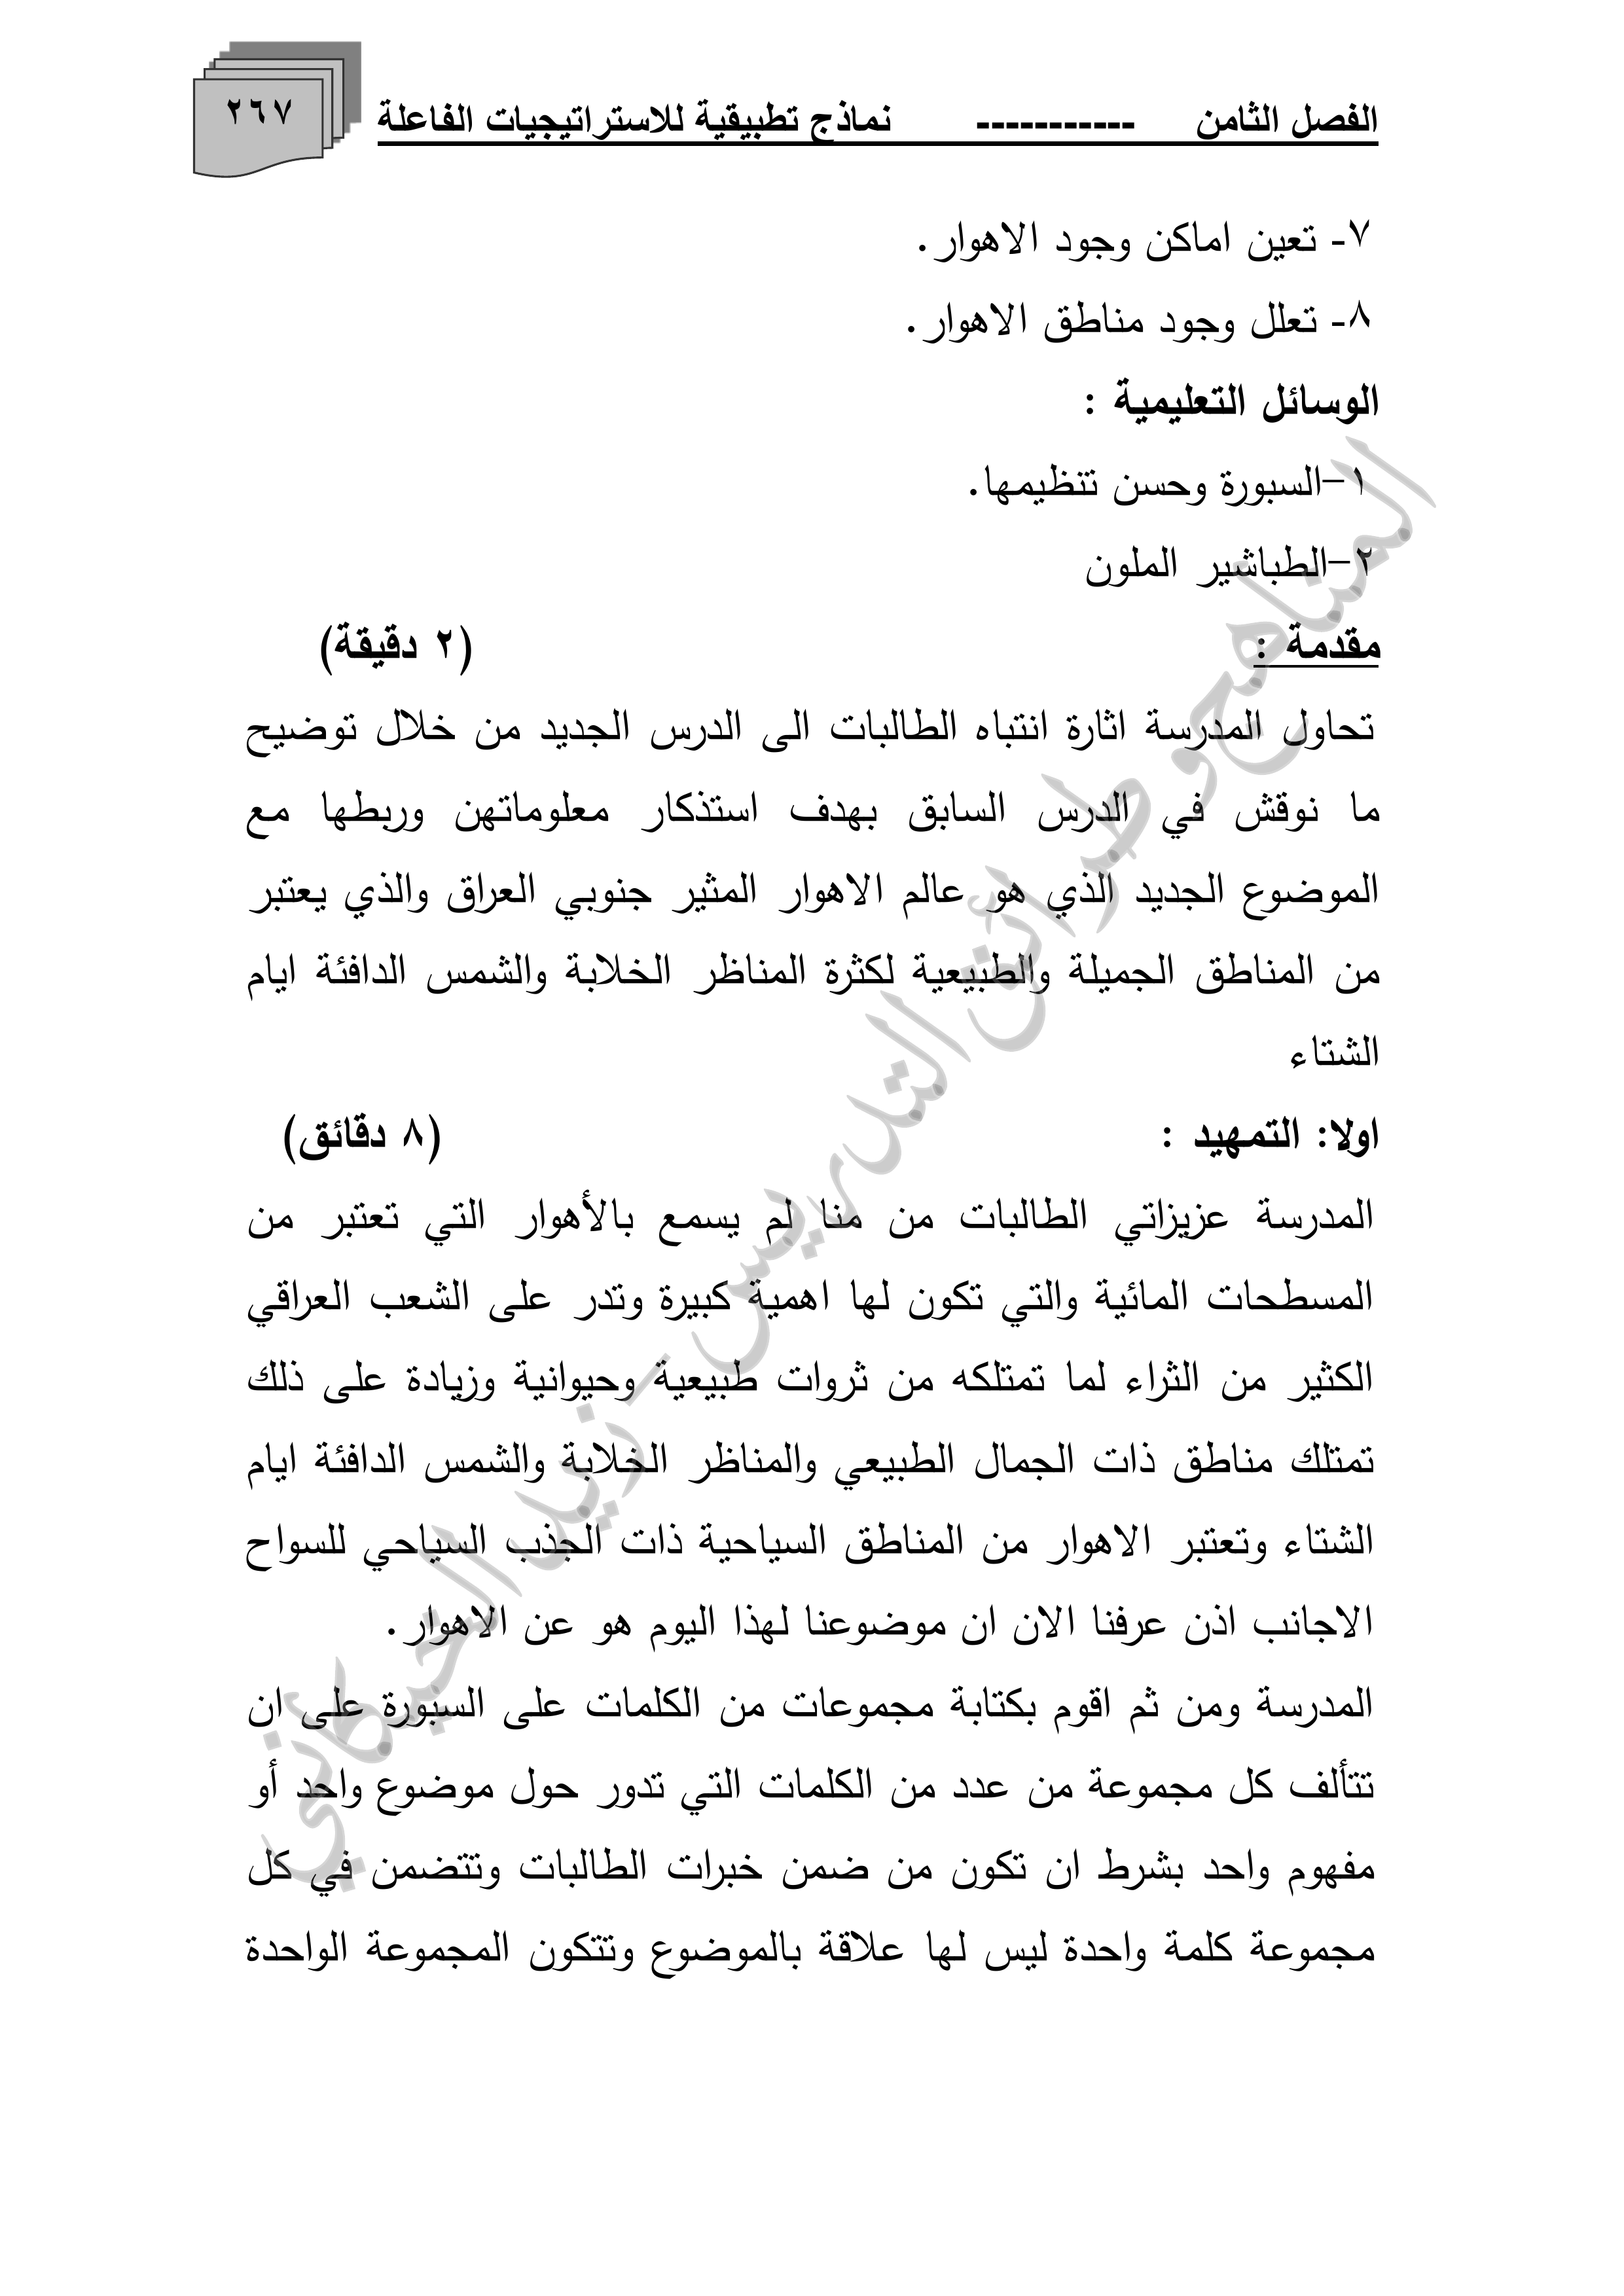 الفصل الثامن ----------- نماذج تطبيقية للاستراتيجيات الفاعلة
٢٦٧
٧- تعين اماكن وجود الاهوار.
٨- تعلل وجود مناطق الاهوار.
الوسائل التعليمية :
١–السبورة وحسن تنظيمها.
٢–الطباشير الملون
مقدمة : (٢ دقيقة)
تحاول المدرسة اثارة انتباه الطالبات الى الدرس الجديد من خلال توضيح
ما نوقش في الدرس السابق بهدف استذكار معلوماتهن وربطها مع
الموضوع الجديد الذي هو عالم الاهوار المثير جنوبي العراق والذي يعتبر
من المناطق الجميلة والطبيعية لكثرة المناظر الخلابة والشمس الدافئة ايام
الشتاء
اولا: التمهيد : (٨ دقائق)
المدرسة عزيزاتي الطالبات من منا لم يسمع بالأهوار التي تعتبر من
المسطحات المائية والتي تكون لها اهمية كبيرة وتدر على الشعب العراقي
الكثير من الثراء لما تمتلكه من ثروات طبيعية وحيوانية وزيادة على ذلك
تمتلك مناطق ذات الجمال الطبيعي والمناظر الخلابة والشمس الدافئة ايام
الشتاء وتعتبر الاهوار من المناطق السياحية ذات الجذب السياحي للسواح
الاجانب اذن عرفنا الان ان موضوعنا لهذا اليوم هو عن الاهوار.
المدرسة ومن ثم اقوم بكتابة مجموعات من الكلمات على السبورة على ان
تتألف كل مجموعة من عدد من الكلمات التي تدور حول موضوع واحد أو
مفهوم واحد بشرط ان تكون من ضمن خبرات الطالبات وتتضمن في كل
مجموعة كلمة واحدة ليس لها علاقة بالموضوع وتتكون المجموعة الواحدة
المناهج وطرائق التدريس - زيد الحيكاني